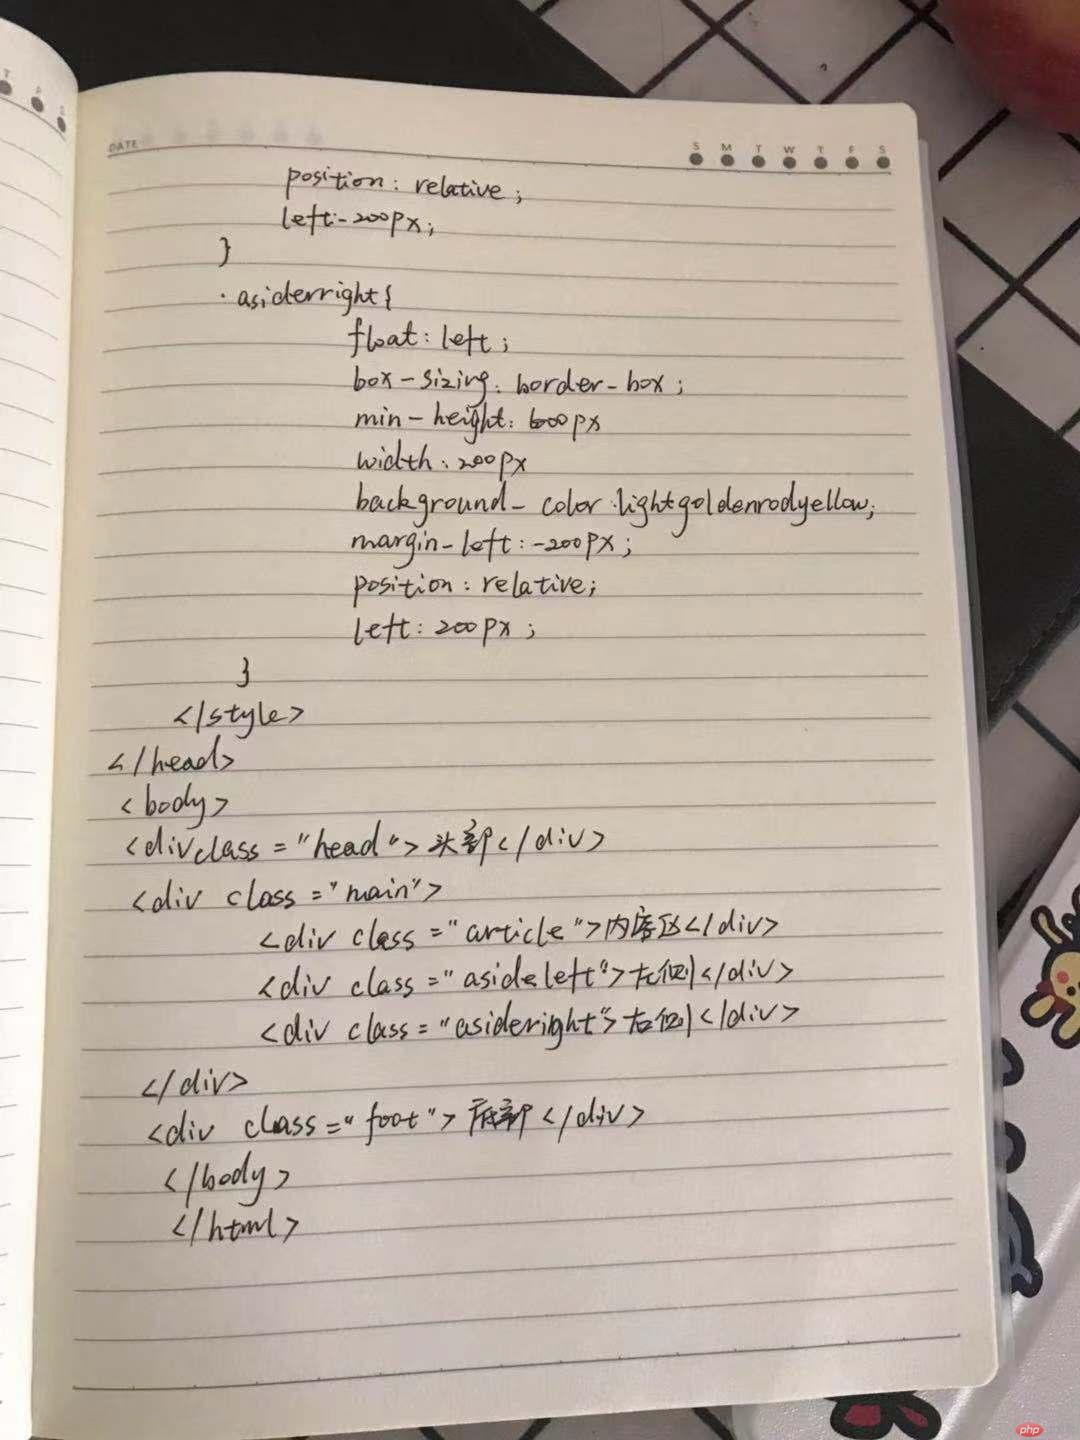 DATE
S M T W T F S
position: relative;
left:-200px;
}
.asiderright{
float: left;
box-sizing: border-box;
min-height: 600px
width: 200px
background-color:lightgoldenrodyellow;
margin-left: -200px;
position: relative;
left: 200px;
}
</style>
</head>
<body>
<divclass="head">头部</div>
<div class="main">
<div class="article">内容区</div>
<div class="asideleft">左侧</div>
<div class="asideright">右侧</div>
</div>
<div class="foot">底部</div>
</body>
</html>
T F S
php